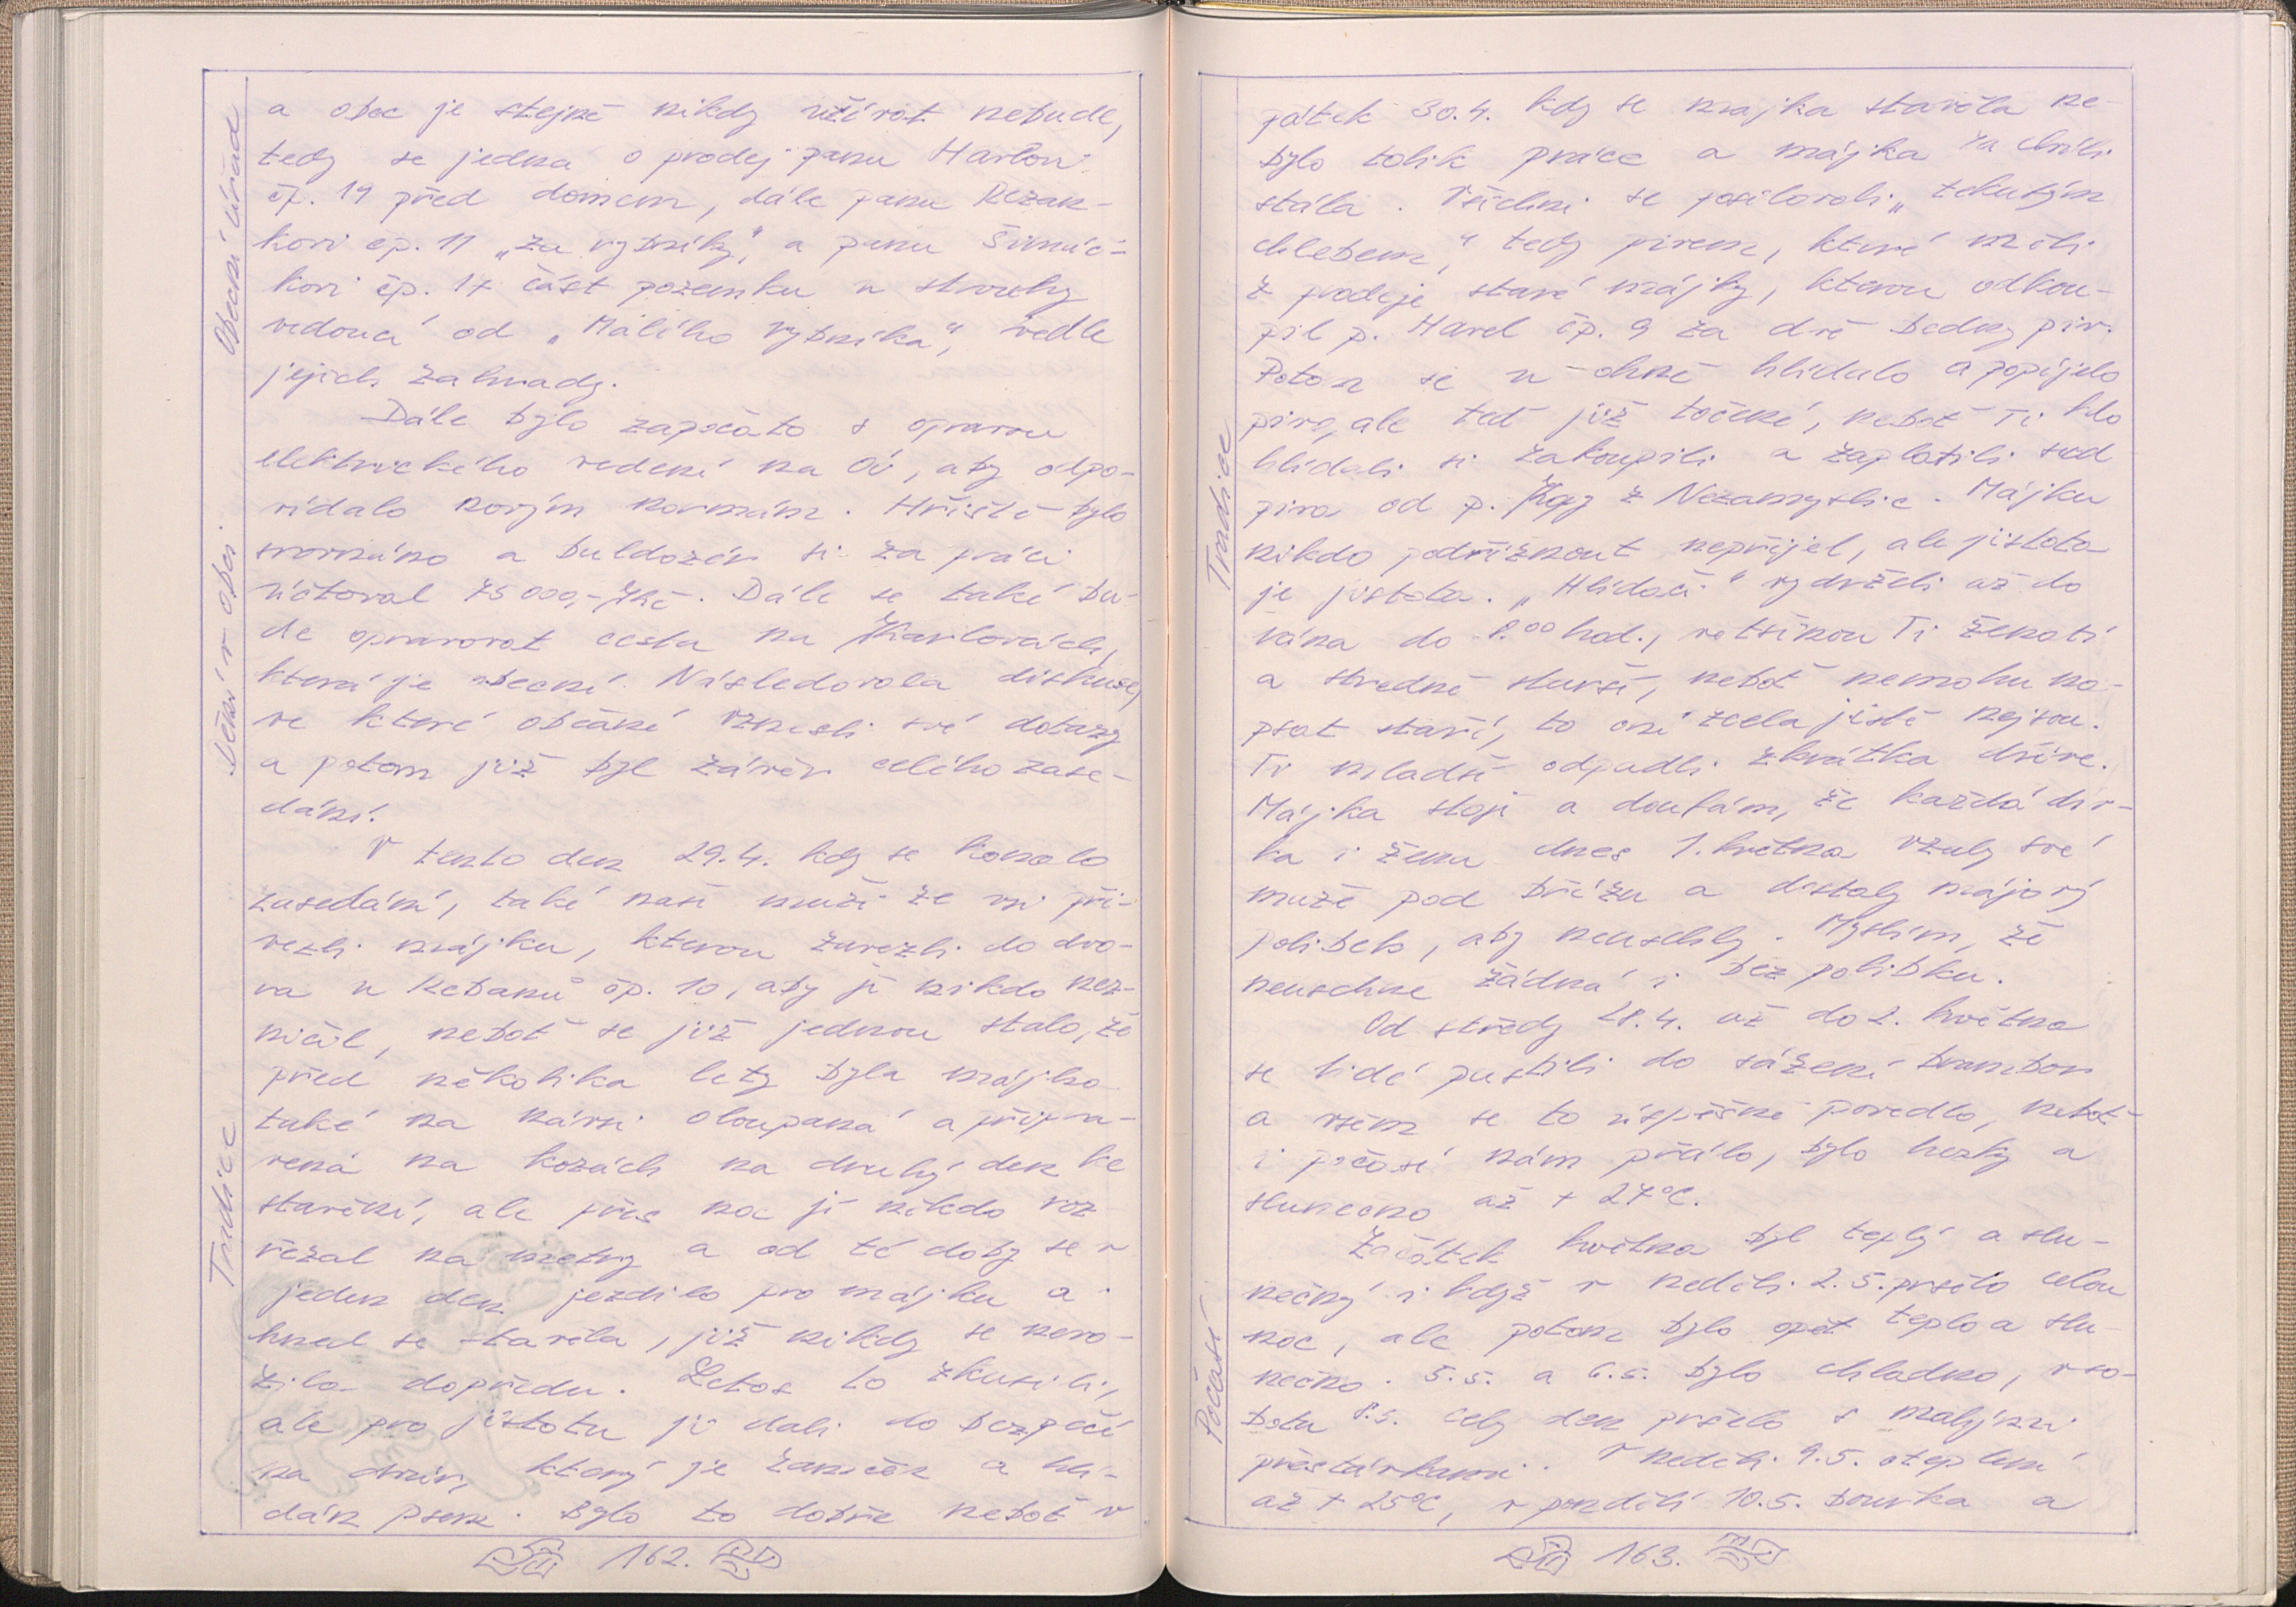 Obecní úřad
Dění v obci
Tradice
a obec je stejně nikdy užívat nebude,
tedy se jedná o prodej panu Havlovi
čp. 19 před domem, dále panu Řezan-
kovi čp. 11 „za rybníky", a panu Šimáč-
kovi čp. 17 část pozemku u strouhy
vedoucí od „Malého rybníka", vedle
jejich zahrady.
Dále bylo započato s opravou
elektrického vedení na OÚ, aby odpo-
vídalo novým normám. Hřiště bylo
srovnáno a buldozér si za práci
účtoval 75 000,- Kč. Dále se také bu-
de opravovat cesta na Karlovách,
která je obecní. Následovala diskuse,
ve které občané vznesli své dotazy
a potom již byl závěr celého zase-
dání.
V tento den 29.4. kdy se konalo
zasedání, také naši muži ze vsi při-
vezli májku, kterou zavezli do dvo-
ra u Rebanů čp. 10, aby jí nikdo nez-
ničil, neboť se již jednou stalo, že
před několika lety byla májka
také na návsi oloupaná a připra-
vená na kozách na druhý den ke
stavění, ale přes noc jí někdo roz
řezal na metry a od té doby se v
jeden den jezdilo pro májku a
hned se stavěla, již nikdy se nevo-
zila dopředu. Letos to zkusili,
ale pro jistotu jí dali do bezpečí
na dvůr, který je zamčen a hlí-
dán psem. Bylo to dobře neboť v
162.
Tradice
Počasí
pátek 30.4. kdy se majka stavěla ne-
bylo tolik práce a májka za chvíli
stála. Všichni se posilovali „tekutým
chlebem", tedy pivem, které měli
z prodeje staré májky, kterou odkou-
pil p. Havel čp. 9 za dvě bedny piv.
Potom se u ohně hlídalo a popíjelo
pivo, ale teď již točené, neboť Ti kdo
hlídali si zakoupili a zaplatili sud
piva od p. z Nezamyslic. Májku
nikdo podříznout nepřijel, ale jistota
je jistota. „Hlídači" vydrželi až do
rána do 8.00 hod., vetšinou Ti ženatí
a středně starší, neboť nemohu na-
psat staří, to oni zcela jistě nejsou.
Ti mladší odpadli zkrátka dříve.
Májka stojí a doufám, že každá dív-
ka i žena dnes 1. května vzaly své
muže pod břízu a dostaly májový
polibek, aby neuschly. Myslím, že
neuschne žádná i bez polibku.
Od středy 28.4. až do 2. května
se lidé pustili do sázení brambor
a všem se to úspěšně povedlo, neboť
i počasí nám přálo, bylo hezky a
slunečno až + 27°C.
Začátek května byl teplý a slu-
nečný i když v neděli 2.5. pršelo celou
noc, ale potom bylo opět teplo a slu-
nečno. 5.5. a 6.5. bylo chladno, v so-
botu 8.5. celý den pršelo s malými
přestávkami. V neděli 9.5. oteplení
až + 25°C, v pondělí 10.5. bouřka a
163.